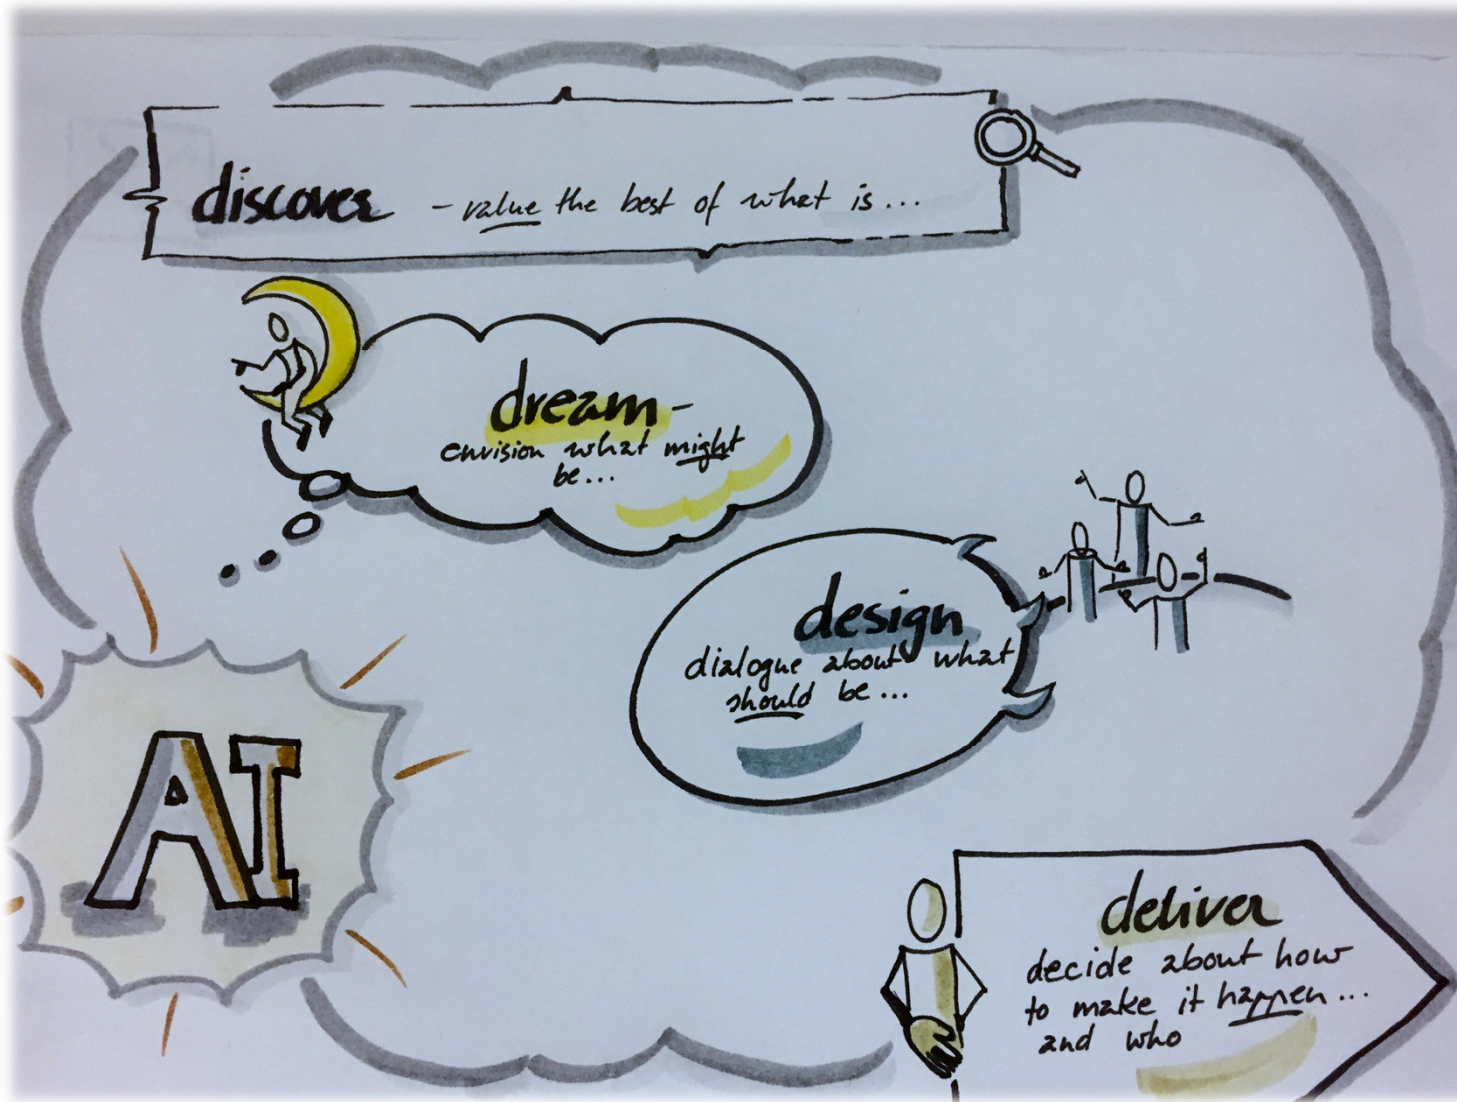 discover - value the best of what is...
dream -
envision what might
be...
design
dialogue about what
should be...
AI
deliver
decide about how
to make it happen...
and who